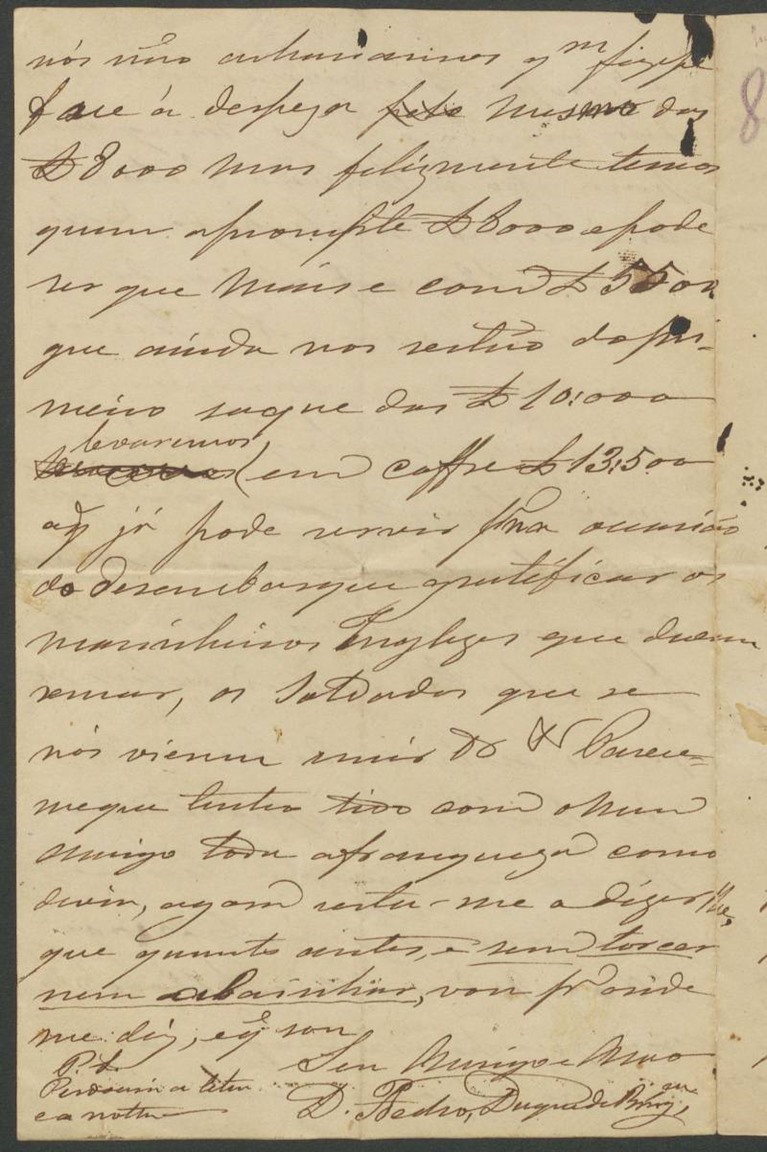 nós não achariamos q.^m fizesse
face á despeza pelo mesmo das
£ 8000 mas felizmente temos
quem apronpte £ 8000 e pode
ser que mais e com £ 5500
que ainda nos restão do pri-
meiro saque das £ 10:000
levaremos
em coffre £ 13,500
o q̃ já pode servir p.ª na occasião
do desembarque gratificar os
marinheiros Inglezes que
remar, os Soldados que se
nós vierem unir &&. Parece-
me que tenho tido com o meu
amigo toda a franqueza como
devia, agora resta-me a dizer lhe,
que quanto antes, e sem torcer
nem abainhar, vou p.ª onde
me diz, e q̃ sou
Seu Amigo e Amo
D. Pedro, Duque de Brag.^ça
P. S.
Perdoem a letra
e a
8